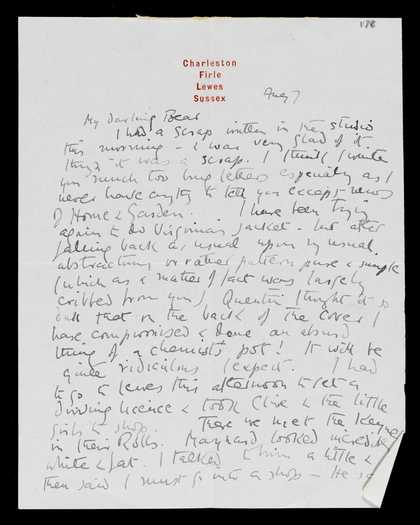 178
Charleston
Firle
Lewes
Sussex
Aug 7
My darling Bear
I had a scrap written in the studio
this morning – & was very glad of it
though it was a scrap. I think I write
you much too long letters especially as I
never have anything to tell you except news
of Home & Garden. I have been trying
again to do Virginia's jacket – but after
falling back as usual upon my usual
abstractions or rather pattern pure & simple
(which as a matter of fact was largely
cribbed from you) Quentin thought it so
dull that on the back of the cover I
have compromised & done an absurd
thing of a chemist's pot! It will be
quite ridiculous I expect. I had
to go to Lewes this afternoon to get a
driving licence & took Clive & the little
girls to shop. There we met the Keynes
in their Rolls. Maynard looked incredibly
white & fat. I talked to him a little &
then said I must go into a shop – He